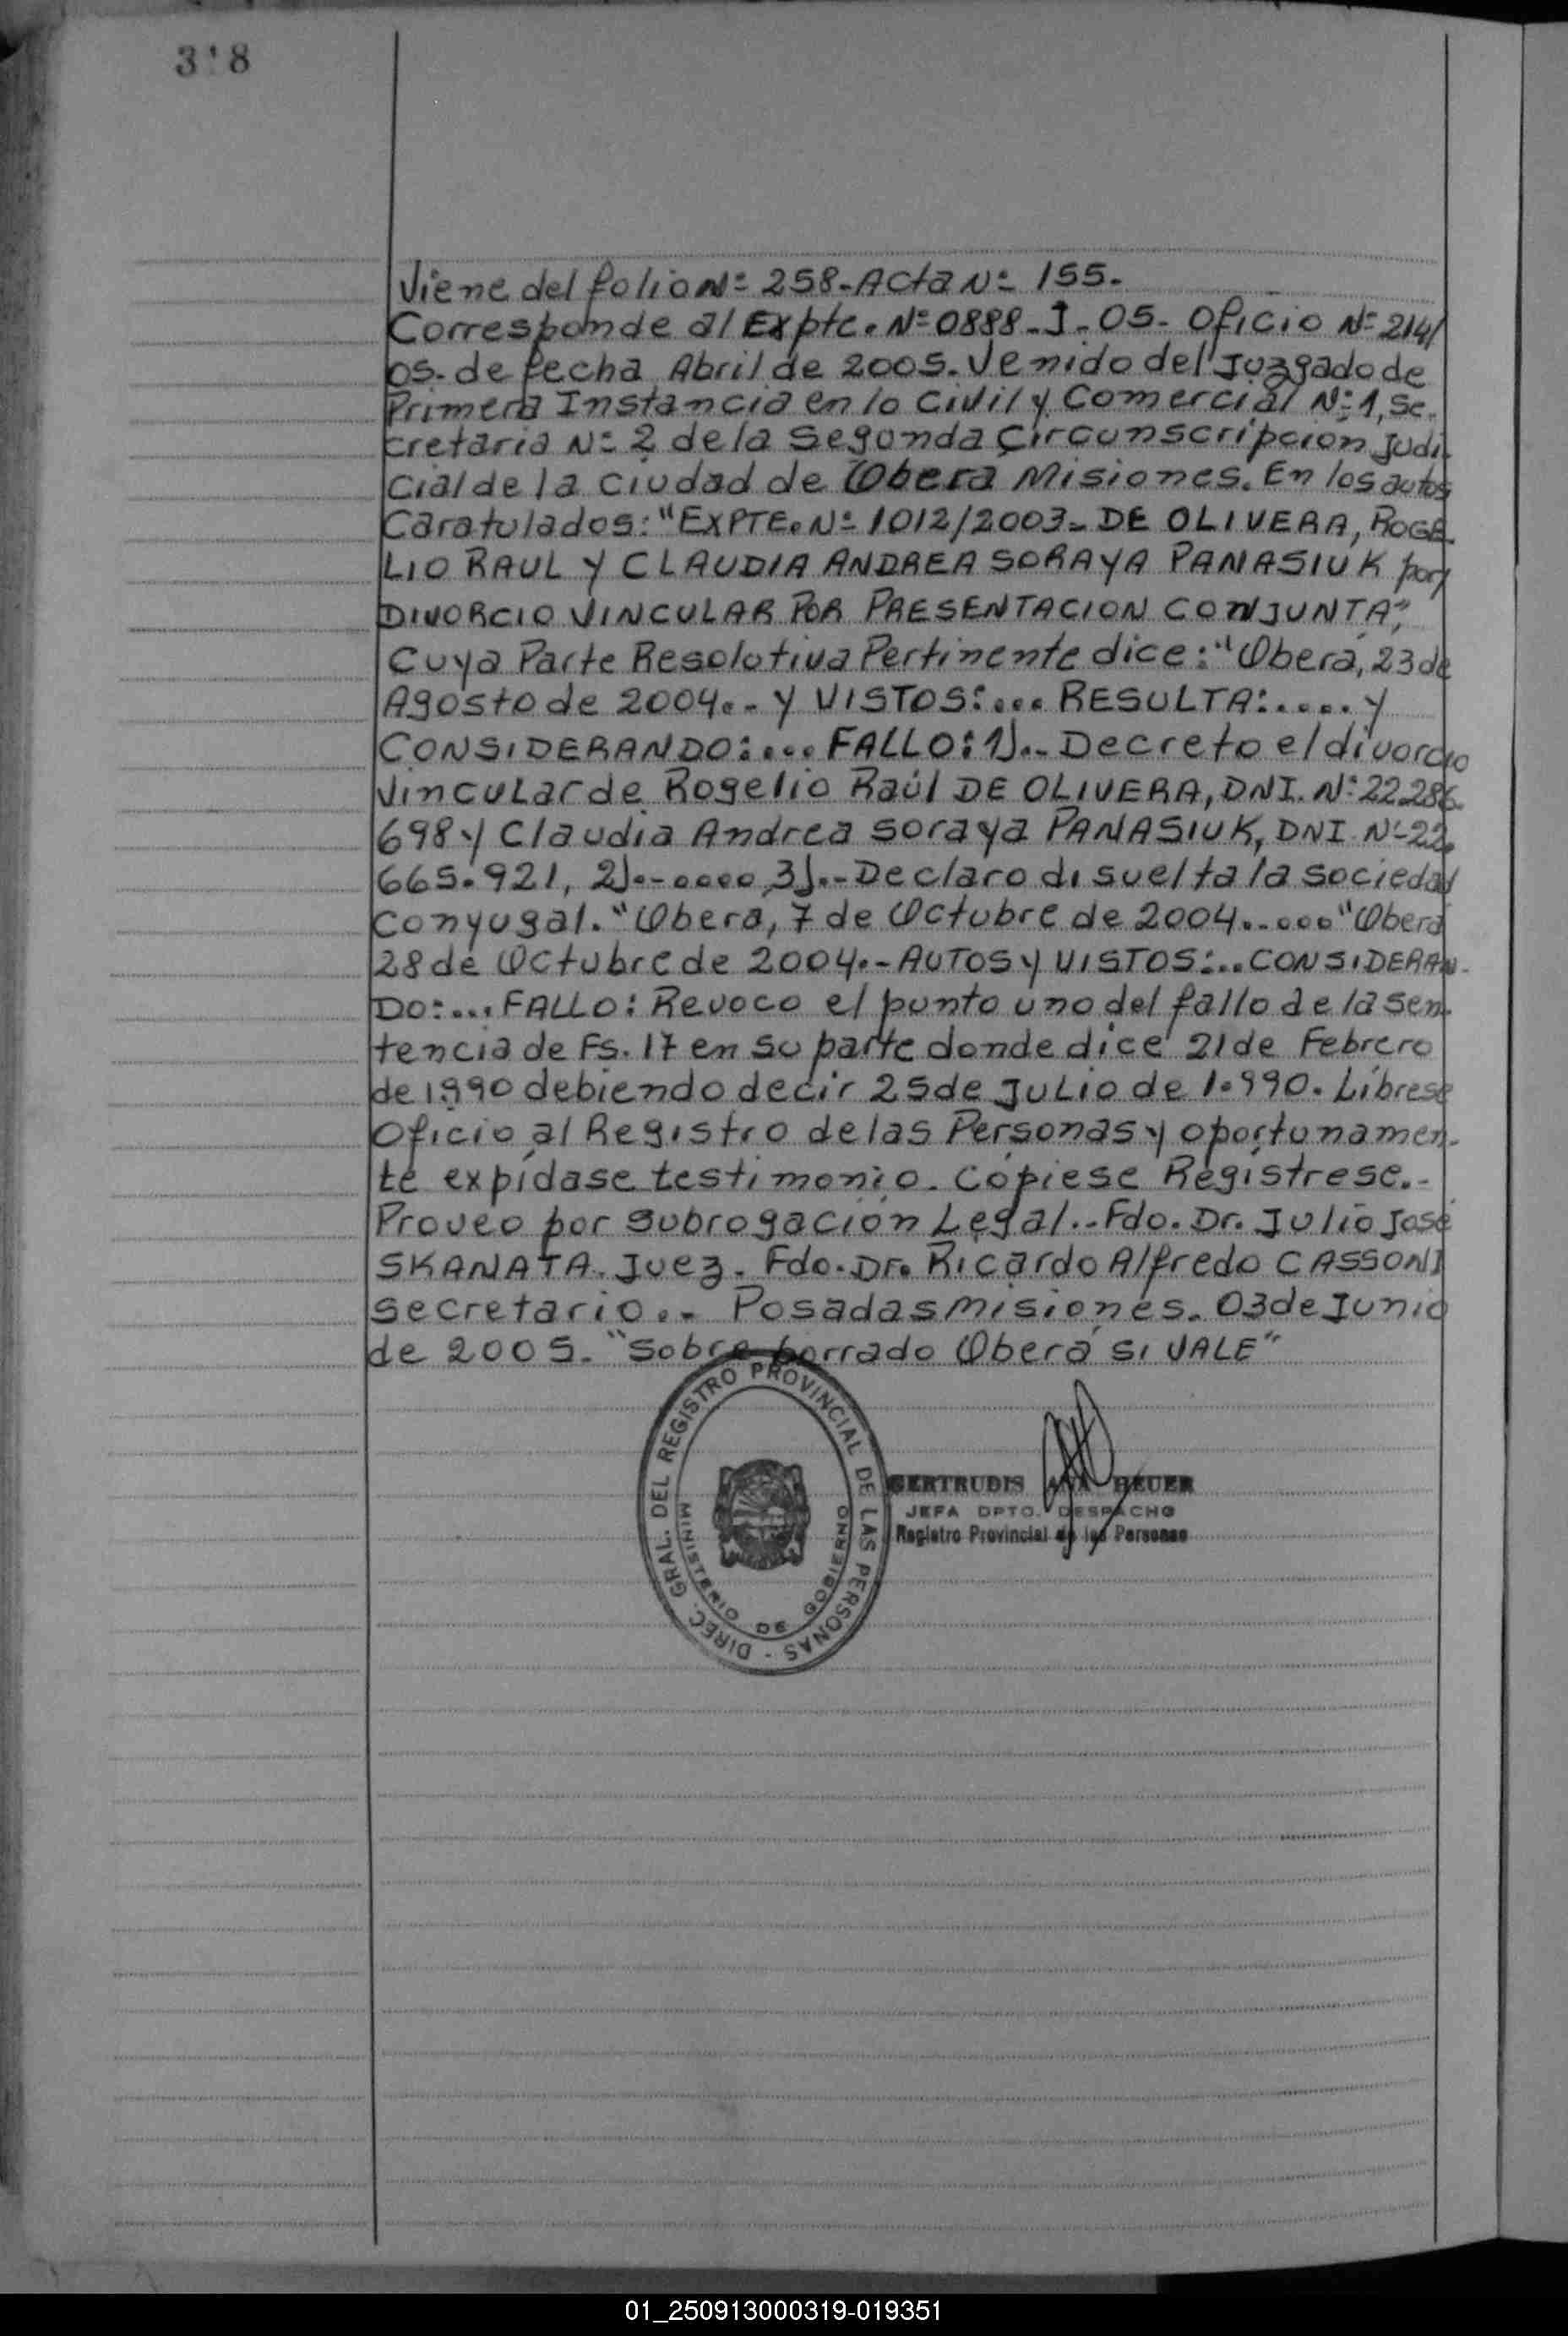 318
Viene del folio Nº 258-Acta Nº 155.
Corresponde al Expte. Nº 0888-J-05- Oficio Nº 214/
05- de fecha Abril de 2005. Venido del Juzgado de
Primera Instancia en lo Civil y Comercial Nº 1, Se-
cretaria Nº 2 de la Segunda Circunscripcion Judi-
cial de la ciudad de Obera Misiones. En los autos
Caratulados: "EXPTE. Nº 1012/2003- DE OLIVERA, ROGE-
LIO RAUL Y CLAUDIA ANDREA SORAYA PANASIUK por/
DIVORCIO VINCULAR POR PRESENTACION CONJUNTA",
Cuya Parte Resolutiva Pertinente dice: "Oberá, 23 de
Agosto de 2004.- Y VISTOS:... RESULTA:..... Y
CONSIDERANDO:.... FALLO: 1).- Decreto el divorcio
Vincular de Rogelio Raúl DE OLIVERA, DNI. Nº 22.286.
698 y Claudia Andrea Soraya PANASIUK, DNI Nº 22.
665.921, 2).-.... 3).- Declaro disuelta la sociedad
Conyugal. "Oberá, 7 de Octubre de 2004.-..." "Oberá
28 de Octubre de 2004.- AUTOS y VISTOS:.. CONSIDERAN-
DO:... FALLO: Revoco el punto uno del fallo de la sen-
tencia de Fs. 17 en su parte donde dice 21 de Febrero
de 1990 debiendo decir 25 de Julio de 1.990. Líbrese
Oficio al Registro de las Personas y oportunamen-
te expídase testimonio. Cópiese Regístrese.-
Proveo por Subrogación Legal..- Fdo. Dr. Julio José
SKANATA. Juez. Fdo. Dr. Ricardo Alfredo CASSONI
Secretario..- Posadas Misiones. 03 de Junio
de 2005. "Sobre borrado Oberá SI VALE"
DIREC. GRAL. DEL REGISTRO PROVINCIAL DE LAS PERSONAS -
MINISTERIO DE GOBIERNO
GERTRUDIS ANA BEUER
JEFA DPTO. DESPACHO
Registro Provincial de las Personas
01_250913000319-019351